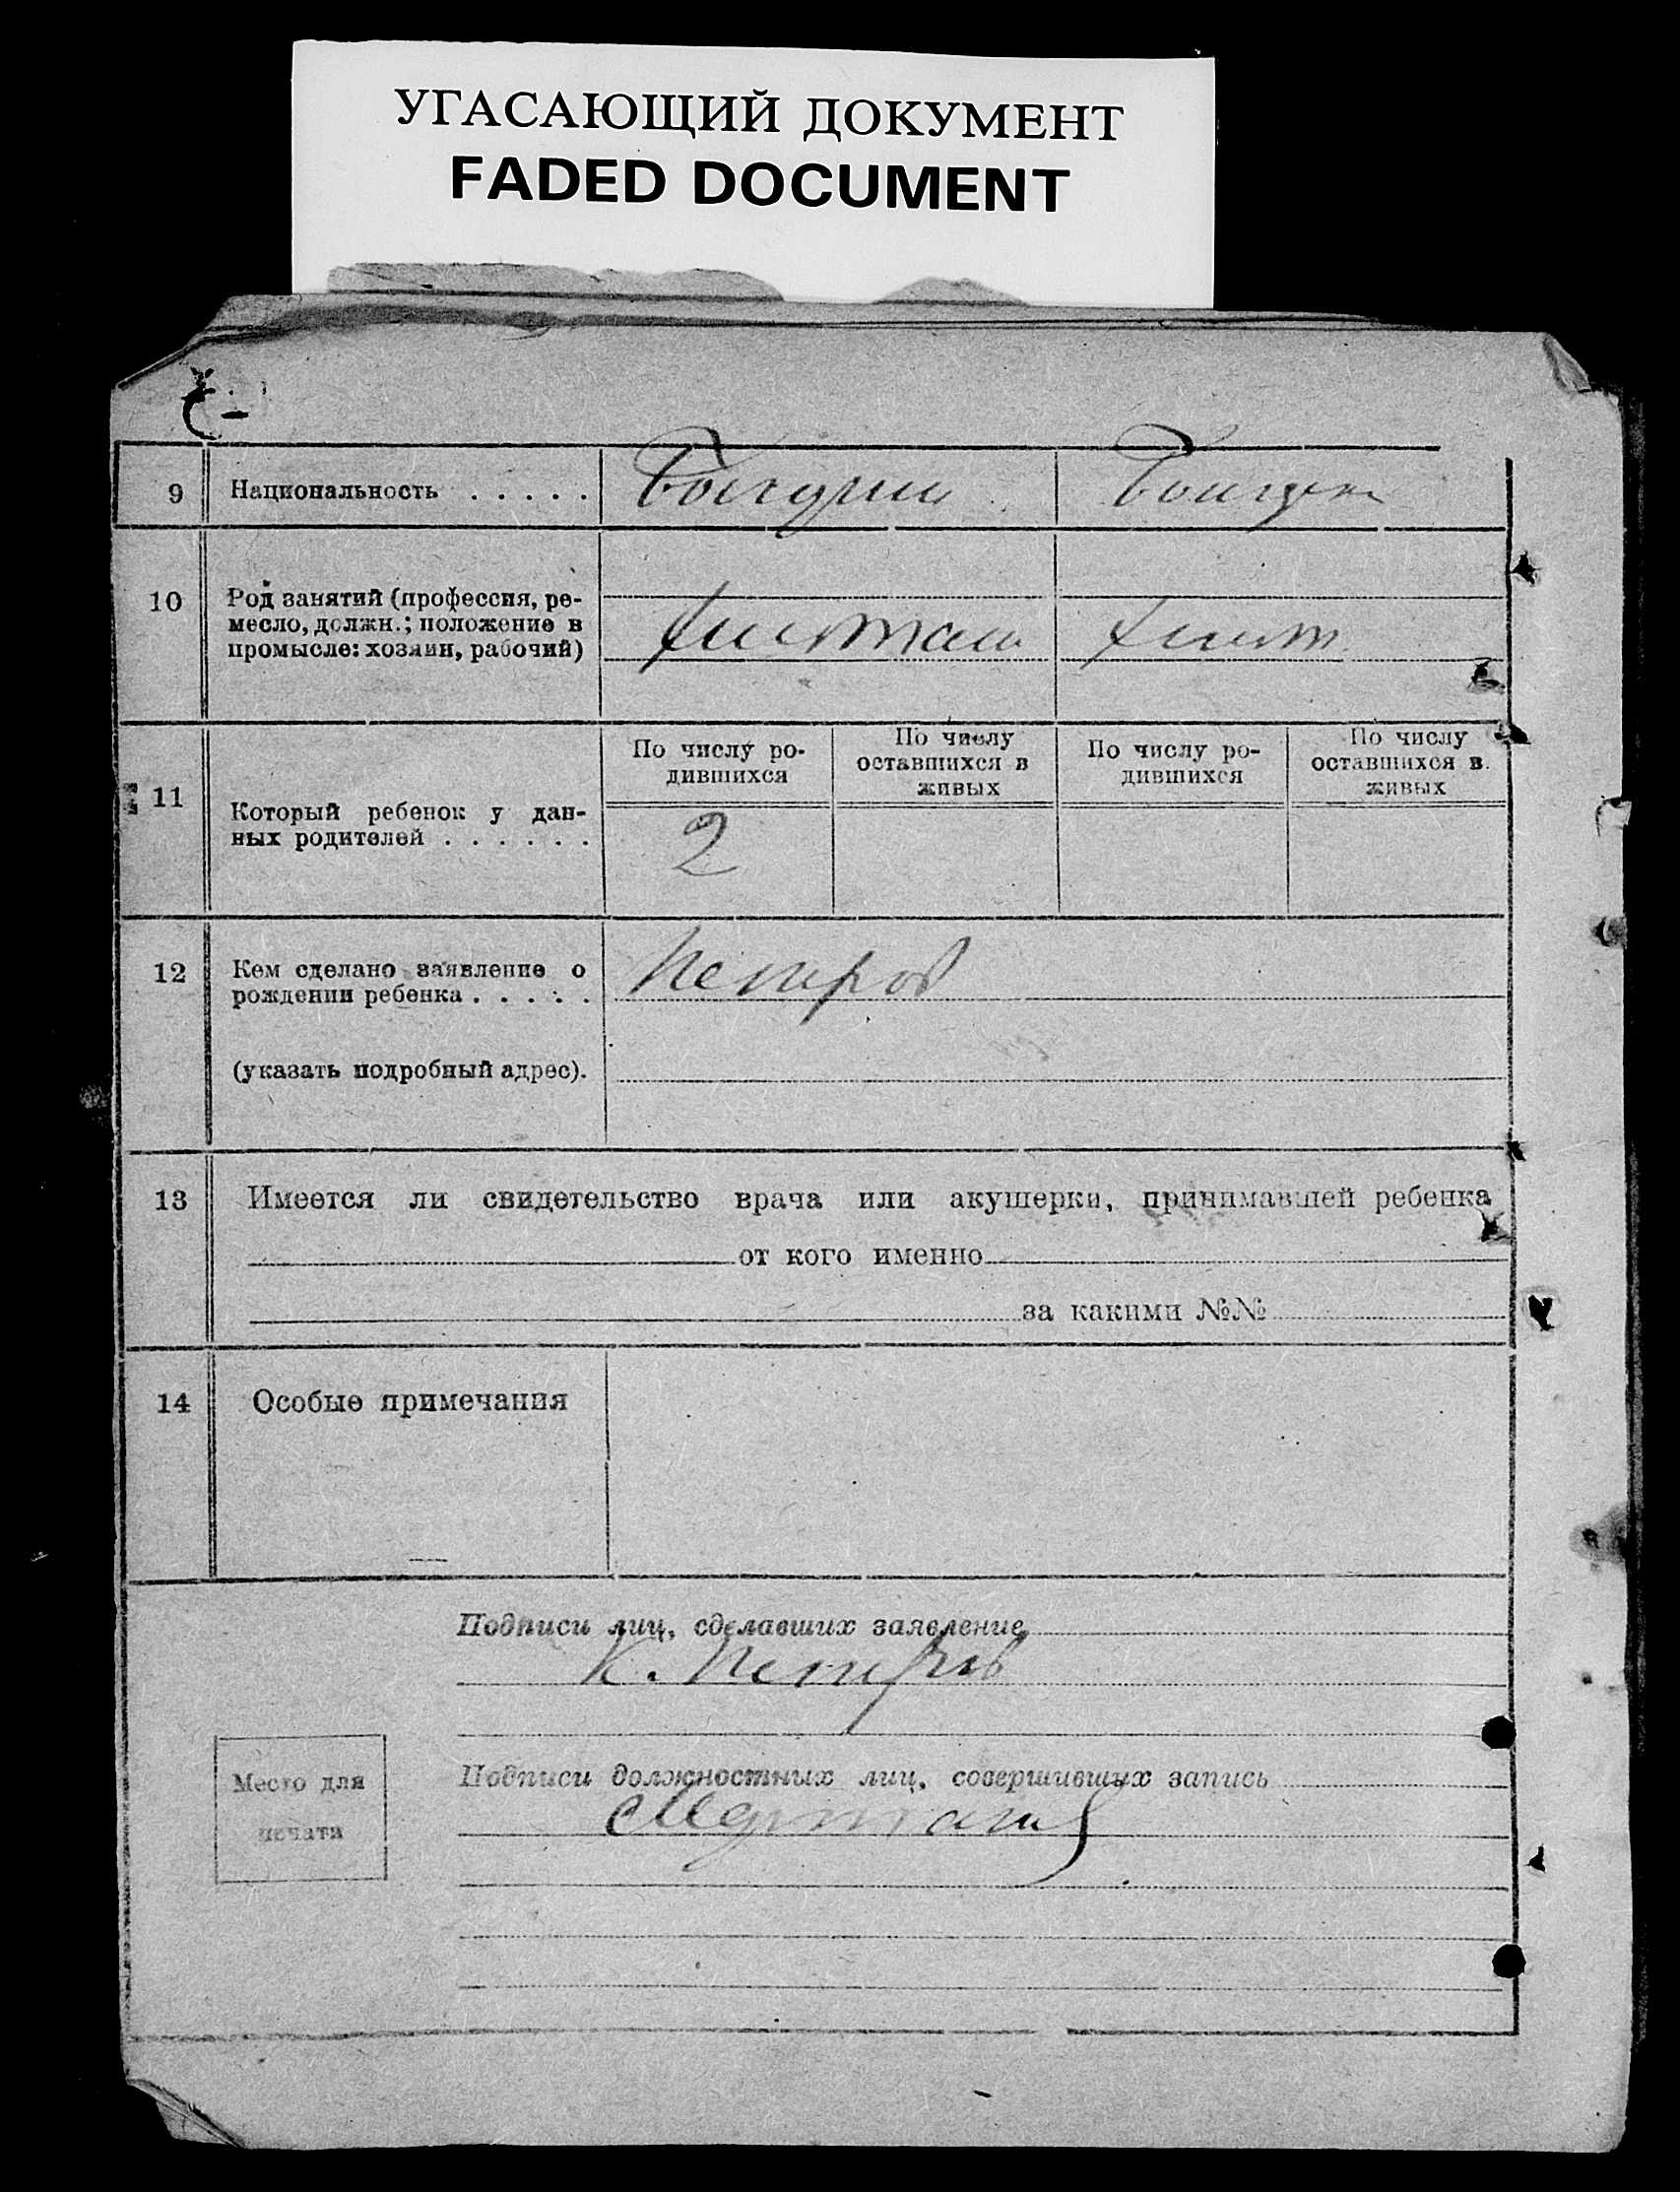 УГАСАЮЩИЙ ДОКУМЕНТ
FADED DOCUMENT
9 Национальность . . . . .
10 Род занятий (профессия, ре-
месло, должн.; положение в
промысле: хозяин, рабочий)
11 Который ребенок у дан-
ных родителей . . . . . .
По числу ро-
дившихся
По числу
оставшихся в
живых
По числу ро-
дившихся
По числу
оставшихся в
живых
2
12 Кем сделано заявление о
рождении ребенка . . . . .
Петров
(указать подробный адрес).
13 Имеется ли свидетельство врача или акушерки, принимавшей ребенка
от кого именно
за какими №№
14 Особые примечания
Подписи лиц, сделавших заявление
К. Петров
Место для
печати
Подписи должностных лиц, совершивших запись